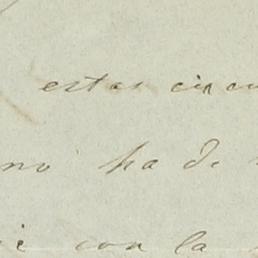 estas circu
no ha de
con la